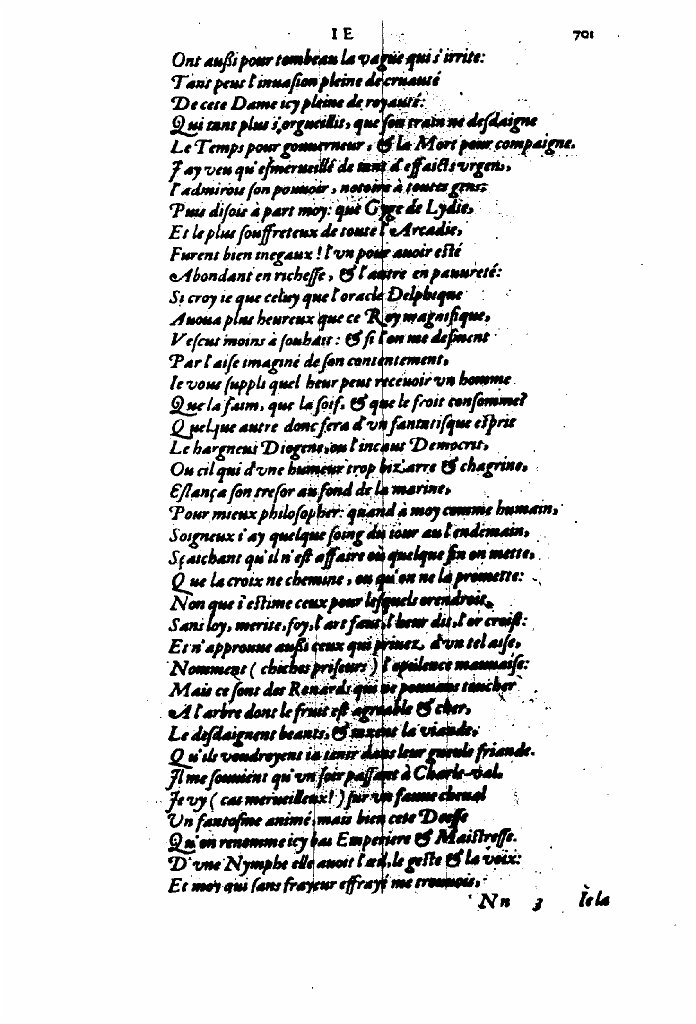 IE 701
Ont außi pour tombeau la vague qui s'irrite:
Tant peut l'inuasion pleine de cruauté
De cete Dame icy pleine de royauté:
Qui tant plus s'orgueillit, que son train ne desdaigne
Le Temps pour gouuerneur, & la Mort pour compaigne.
J'ay veu qu'esmerueillé de tant d'effaicts vrgens,
l'admirois son pouuoir, notoire à toutes gens:
Puis disois à part moy: que Gyge de Lydie,
Et le plus souffreteux de toute l'Arcadie,
Furent bien inegaux! l'vn pour auoir esté
Abondant en richesse, & l'autre en pauureté:
Si croy ie que celuy que l'oracle Delphique
Auoua plus heureux que ce Roy magnifique,
Vescut moins à souhait: & si l'on me desment
Par l'aise imaginé de son contentement,
Ie vous suppli quel heur peut receuoir vn homme
Que la faim, que la soif, & que le froit consomme?
Quelque autre donc sera d'vn fantastisque esprit
Le hargneus Diogene, ou l'incaut Democrit,
Ou cil qui d'vne humeur trop bizarre & chagrine,
Eslança son tresor au fond de la marine,
Pour mieux philosopher: quand à moy comme humain,
Soigneux i'ay quelque soing du iour au l'endemain,
Sçaichant qu'il n'est affaire où quelque fin on mette,
Que la croix ne chemine, ou qu'on ne la promette:
Non que i'estime ceux pour lesquels orendroit,
Sans loy, merite, foy, l'art faut, l'heur dit, l'or croist:
Et n'approuue außi ceux qui priuez, d'vn tel aise,
Nomment (chiches priseurs) l'opulence mauuaise:
Mais ce sont des Renards qui ne pouuans toucher
A l'arbre dont le fruit est agreable & cher,
Le desdaignent beants, & taxent la viande,
Qu'ils voudroyent ia tenir dans leur gueule friande.
Jl me souuient qu'vn soir passant à Charle-val,
Je vy (cas merueilleux!) sur vn faune cheual
Vn fantosme animé, mais bien cete Deesse
Qu'on renomme icy bas Emperiere & Maistresse.
D'vne Nymphe elle auoit l'œil, le geste & la voix:
Et moy qui sans frayeur effrayé me trouuois,
Nn 3 Ie la